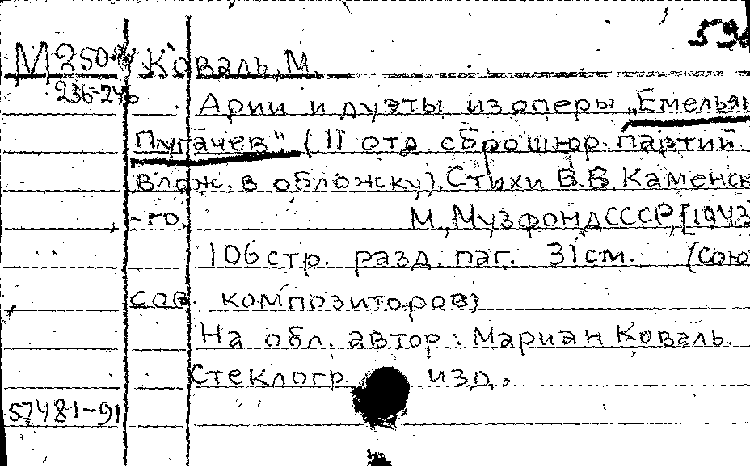 М250 Коваль, М.
236-246
Арии и дуэты из оперы „Емельян
Пугачев" (11 отд. сброшюр. партий
влож. в обложку). Стихи В.В. Каменск
-го. М., Музфонд СССР, [1943
106 стр. разд. паг. 31 см. (Союз
сов. композиторов)
На обл. автор: Мариан Коваль
Стеклогр. изд.
57481-91